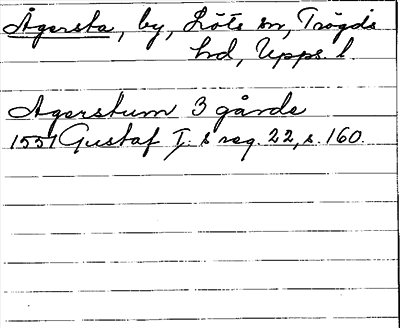 Ågersta, by, Löts sn, Trögds
hd, Upps. l.
Agerstum 3 gårde
1551 Gustaf I:s reg. 22, s. 160.